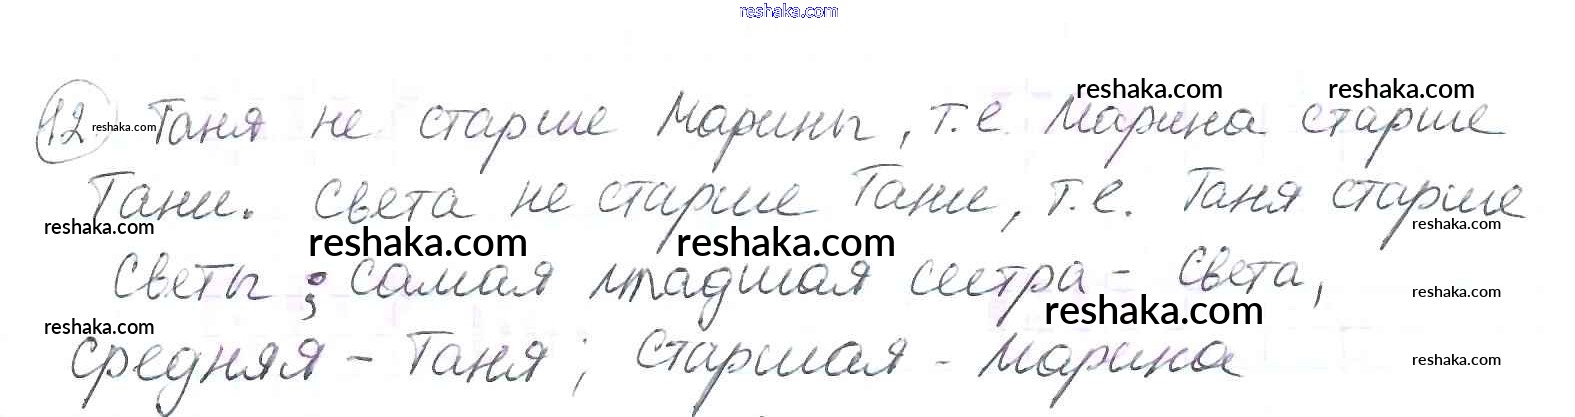 reshaka.com
reshaka.com reshaka.com
12 reshaka.com Таня не старше Марины, т.е. Марина старше
Тани. Света не старше Тани, т.е. Таня старше
reshaka.com reshaka.com reshaka.com reshaka.com
Светы; самая младшая сестра - Света,
reshaka.com reshaka.com reshaka.com
средняя - Таня; старшая - Марина
reshaka.com